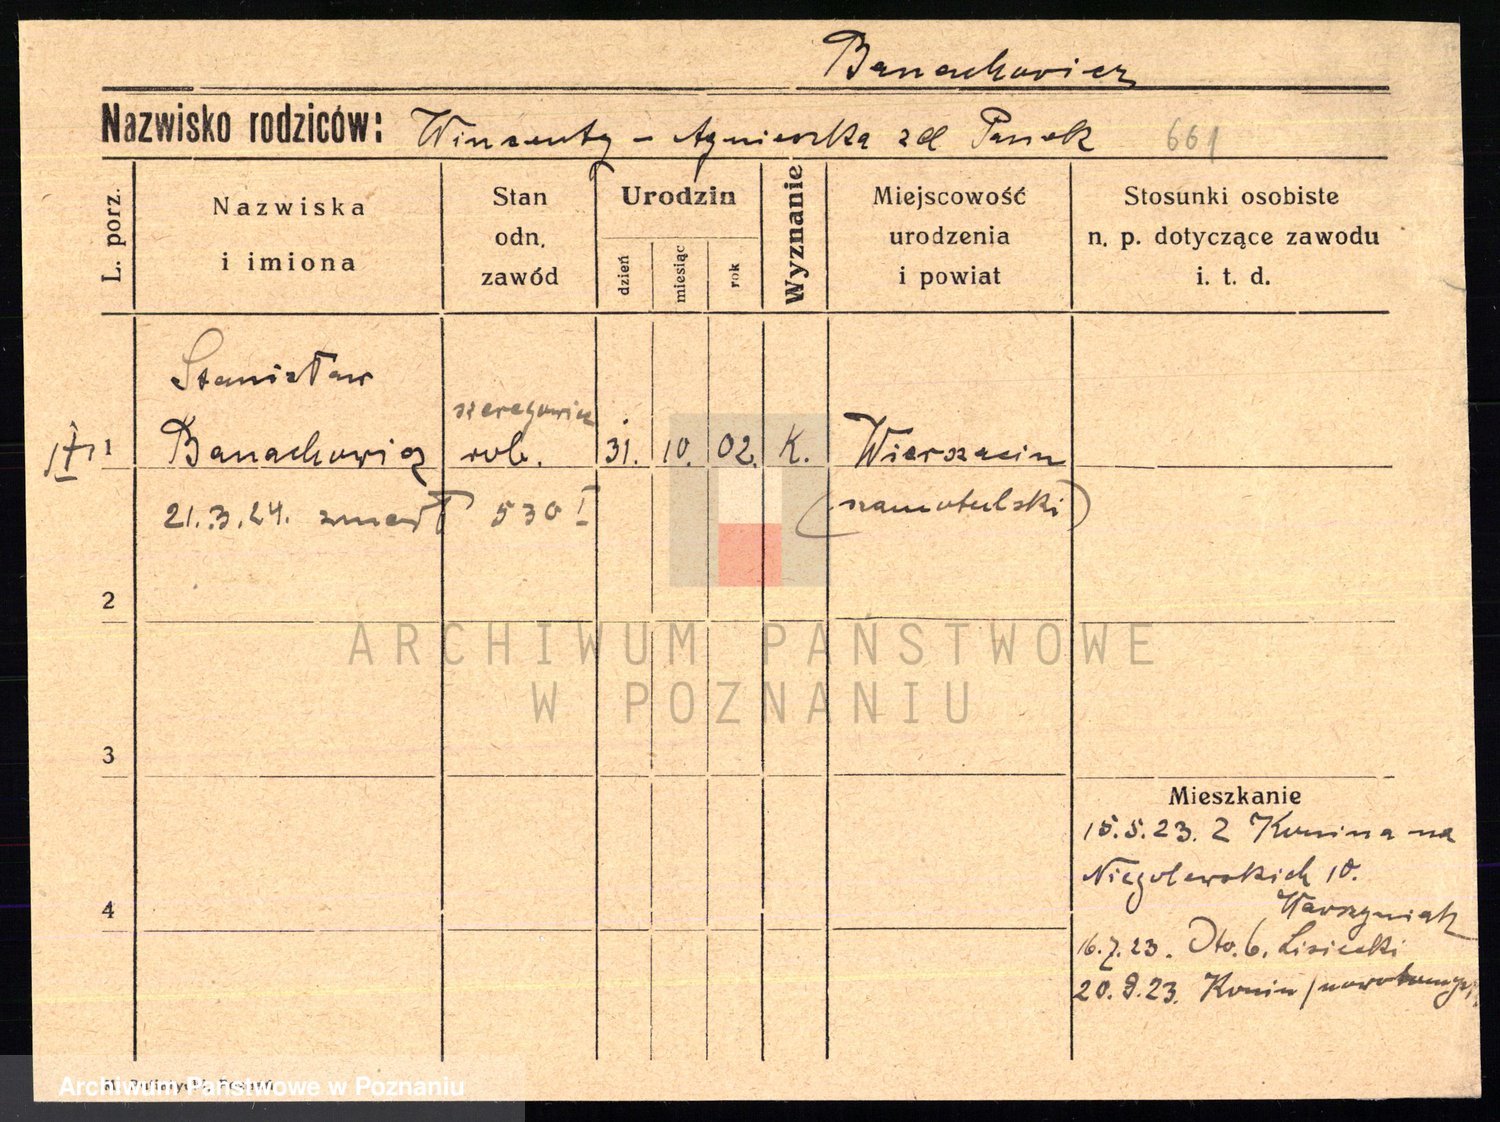 Banachowicz
Nazwisko rodziców: Wincenty - Agnieszka zd Panek 661
L. porz.
Nazwiska
i imiona
Stan
odn.
zawód
Urodzin
dzień
miesiąc
rok
Wyznanie
Miejscowość
urodzenia
i powiat
Stosunki osobiste
n. p. dotyczące zawodu
i. t. d.
Stanisław
szeregowiec
1 Banachowicz rob. 31. 10. 02. K. Wierszacin
21.3.24. zmarł 530 I (szamotulski)
2
3
4
Mieszkanie
15.5.23. Z Konina na
Niegolewskich 10.
Warszyniak
16.7.23. Oto. 6. Lisiecki
20.9.23. Konin / nowotomys
ARCHIWUM PAŃSTWOWE
W POZNANIU
Archiwum Państwowe w Poznaniu